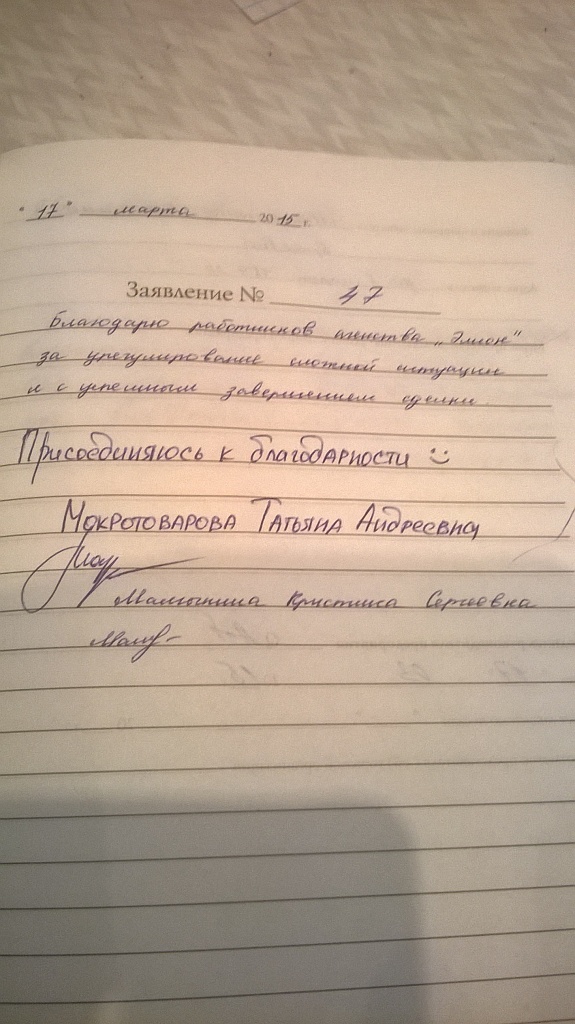 "17" марта 2015 г.
Заявление № 47
Благодарю работников агенства „Элион"
за урегулирование сложной ситуации
и с успешным завершением сделки.
Присоединяюсь к благодарности :)
Мокротоварова Татьяна Андреевна
Кристина Сергеевна